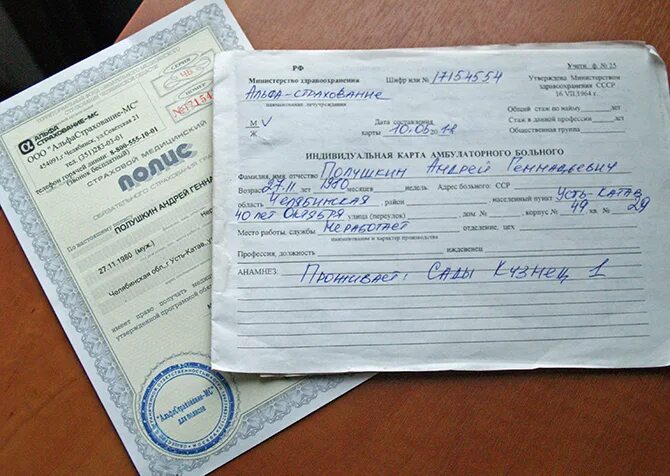 СЕРИЯ
ЧБ
НОМЕР
№17154
АЛЬФА
СТРАХОВАНИЕ-МС
ООО "АльфаСтрахование-МС"
454091, г. Челябинск, ул.Советская 21
тел. (351)
телефон горячей линии: 8-800-555-10-01
(звонок бесплатный)
СТРАХОВОЙ МЕДИЦИНСКИЙ
ПОЛИС
ОБЯЗАТЕЛЬНОГО СТРАХОВАНИЯ ГРА
По настоящему
ПОЛУШКИН АНДРЕЙ ГЕННА
27.11.1980 (муж.)
Нер
Челябинская обл, г Усть-Катав
имеет право получать медици
утвержденной программой обя
"АльфаСтрахование-МС"
РФ
Министерство здравоохранения
Альфа-страхование
наименование лечучреждения
М V
Ж
Дата составления
карты 10.06.2018
Шифр или № 17154554
Учетн. ф. № 25
Утверждена Министерством
здравоохранения СССР
16 VII.1964 г.
Общий стаж по найму лет
Стаж в данной профессии лет
Общественная группа
ИНДИВИДУАЛЬНАЯ КАРТА АМБУЛАТОРНОГО БОЛЬНОГО
Фамилия, имя, отчество Полушкин Андрей Геннадьевич
Возраст 27.11 1980 месяцев недель Адрес больного: ССР
область Челябинская , район населенный пункт Усть-Катав
40 лет Октября улица (переулок) дом № , корпус № 49 кв. 29
Место работы, службы Неработает отделение, цех
наименование и характер производства
Профессия, должность иждевенец
АНАМНЕЗ: Проживает: Сады Кузнец 1